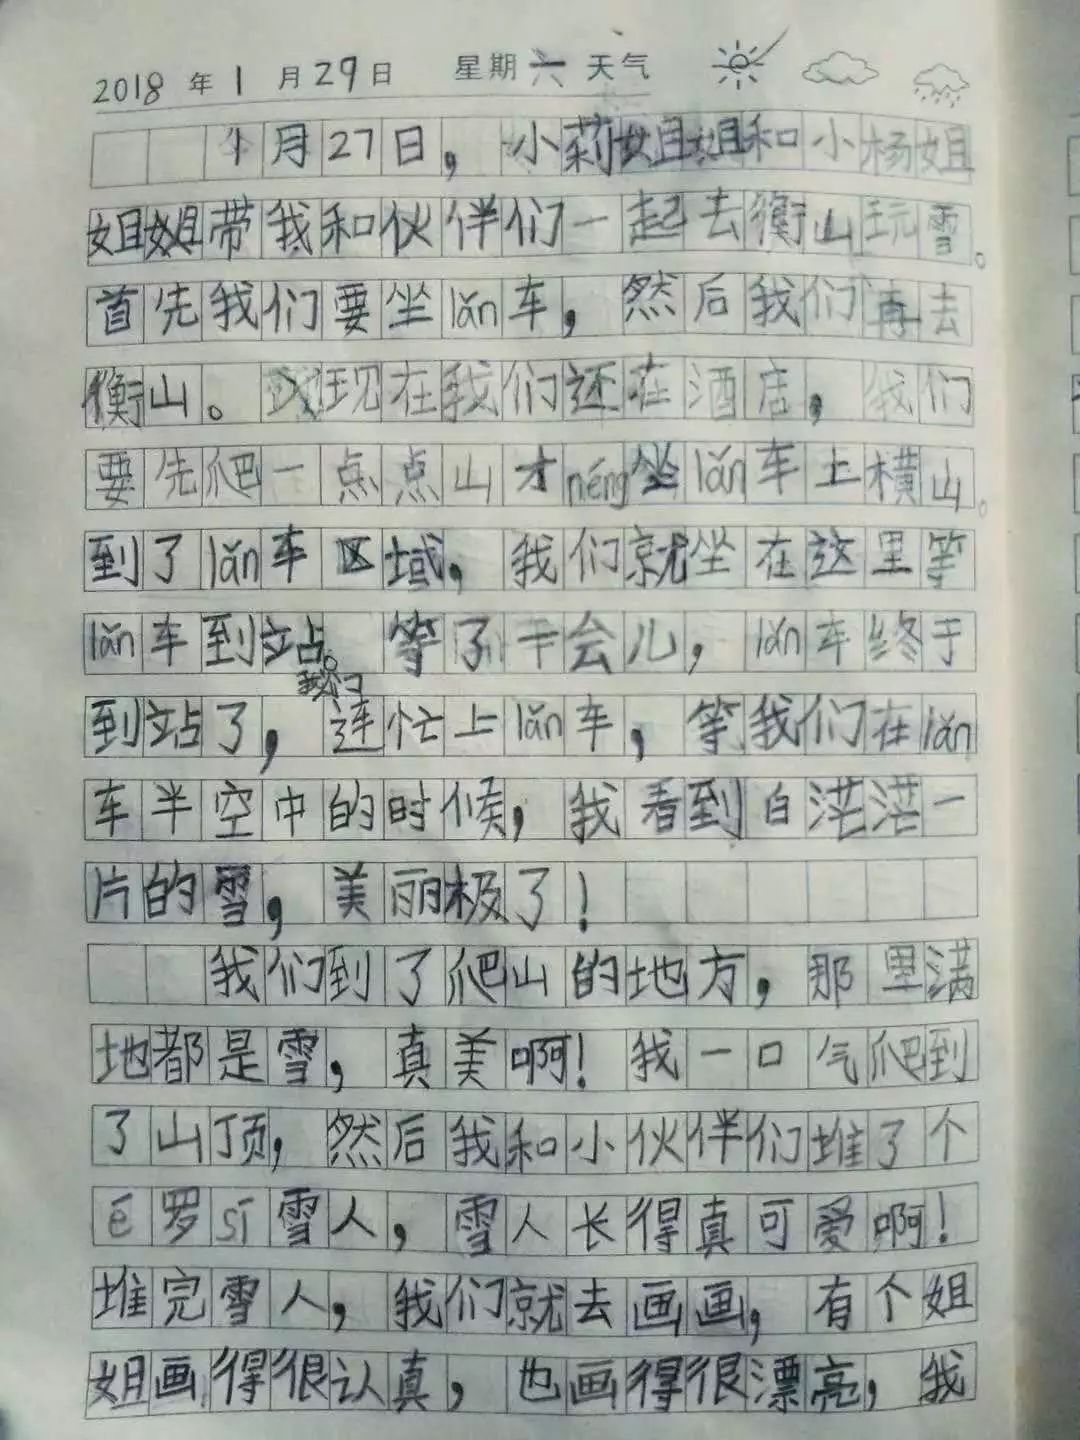 2018年1月29日 星期六天气
1月27日，小莉姐姐和小杨姐
姐带我和伙伴们一起去衡山玩雪。
首先我们要坐lǎn车，然后我们再去
衡山。现在我们还在酒店，我们
要先爬一点点山才néng坐lǎn车上横山。
到了lǎn车区域，我们就坐在这里等
lǎn车到站。等了一会儿，lǎn车终于
到站了，我们连忙上lǎn车，等我们在lǎn
车半空中的时候，我看到白茫茫一
片的雪，美丽极了！
我们到了爬山的地方，那里满
地都是雪，真美啊！我一口气爬到
了山顶，然后我和小伙伴们堆了个
é罗sī雪人，雪人长得真可爱啊！
堆完雪人，我们就去画画，有个姐
姐画得很认真，也画得很漂亮，我